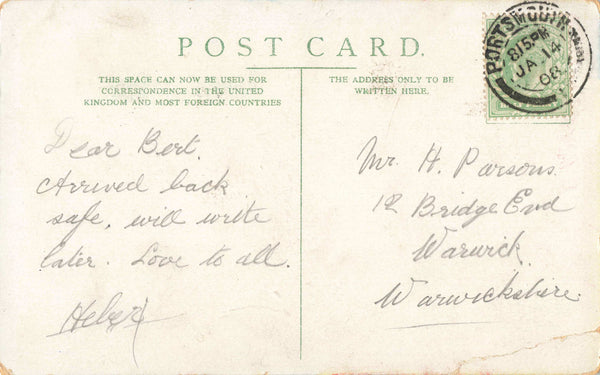 POST CARD.
THIS SPACE CAN NOW BE USED FOR
CORRESPONDENCE IN THE UNITED
KINGDOM AND MOST FOREIGN COUNTRIES
THE ADDRESS ONLY TO BE
WRITTEN HERE.
PORTSMOUTH
815PM
JA 14
08
Dear Bert.
Arrived back
safe, will write
later. Love to all.
Mr. H. Parsons.
Bridge End
Warwick.
Warwickshire.